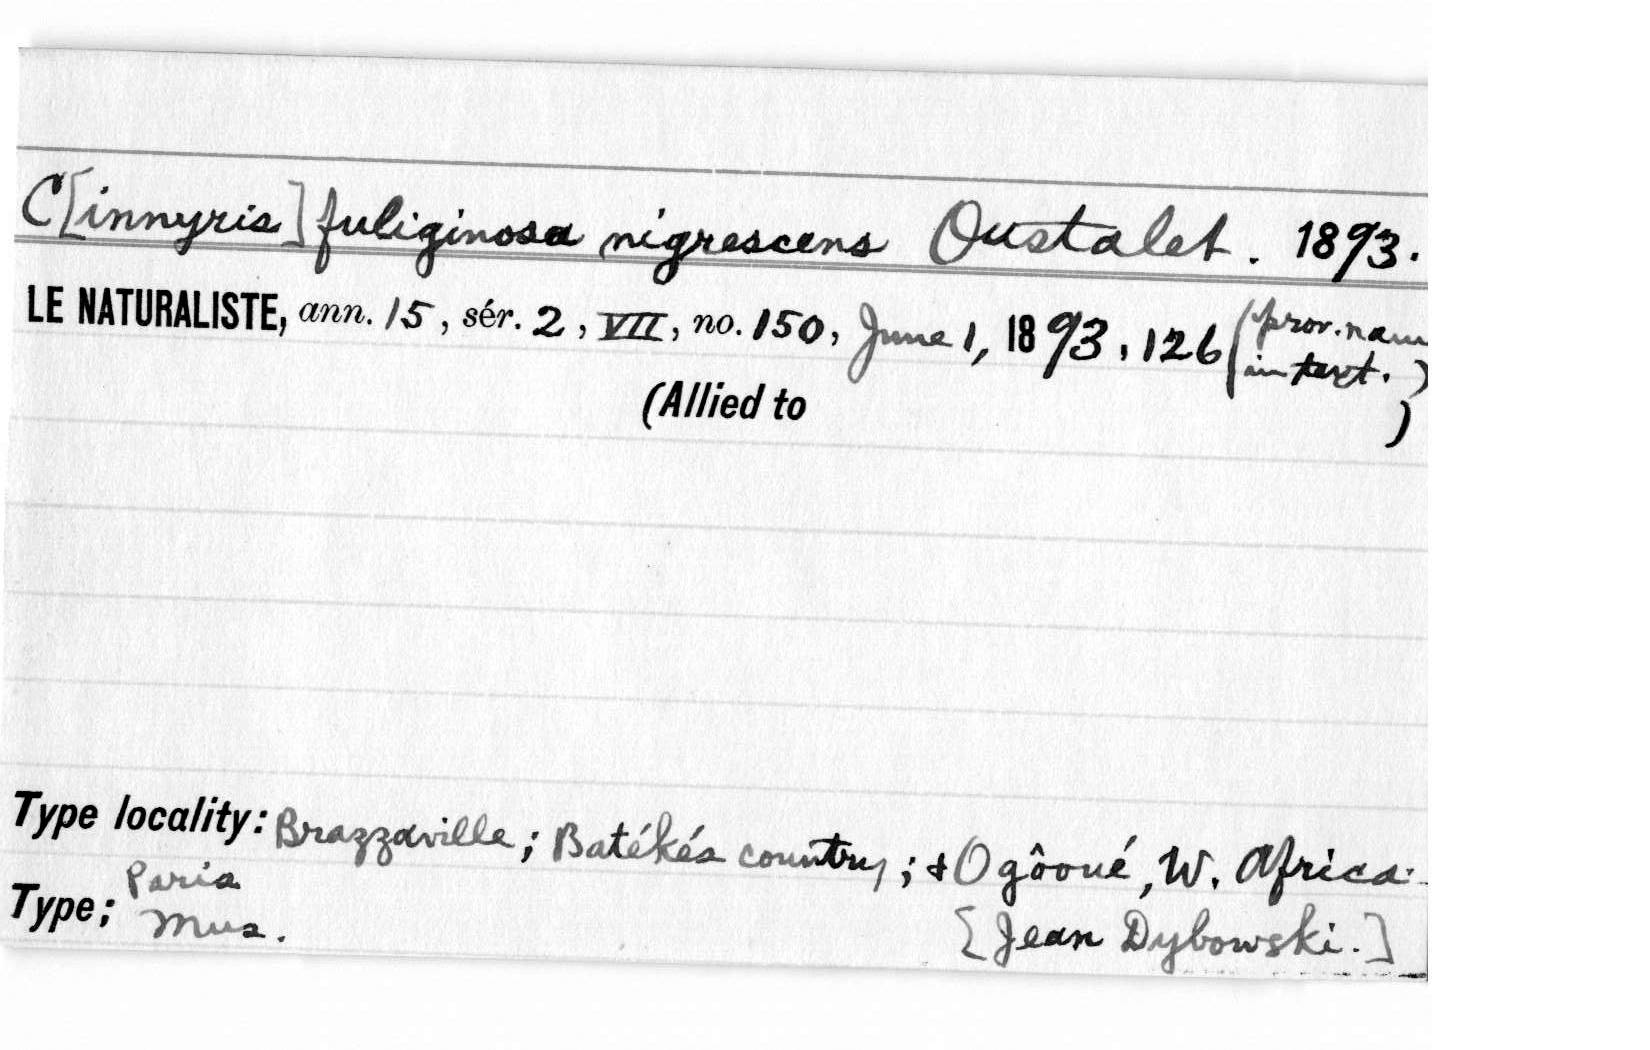 C[innyris] fuliginosa nigrescens Oustalet. 1893.
LE NATURALISTE, ann. 15, sér. 2, VII, no. 150, June 1, 1893, 126 (prov. nam
in text.)
(Allied to )
Type locality: Brazzaville; Batékés country; & Ogôoué, W. Africa.
Type; Paris
Mus.
[Jean Dybowski.]